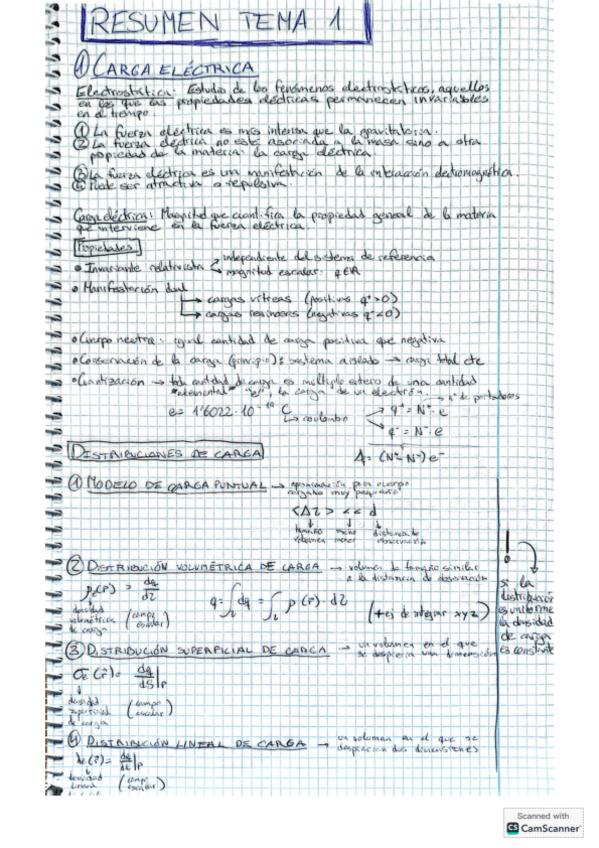 RESUMEN TEMA 1
① CARGA ELÉCTRICA
Electrostática: Estudio de los fenómenos electrostáticos, aquellos
en los que las propiedades eléctricas permanecen invariables
en el tiempo.
① La fuerza eléctrica es más intensa que la gravitatoria.
② La fuerza eléctrica no está asociada a la masa sino a otra
propiedad de la materia: la carga eléctrica.
③ La fuerza eléctrica es una manifestación de la interacción electromagnética.
④ Puede ser atractiva o repulsiva.
Carga eléctrica: Magnitud que cuantifica la propiedad general de la materia
que interviene en la fuerza eléctrica.
Propiedades
• Invariante relativista → independiente del sistema de referencia
→ magnitud escalar: q∈R
• Manifestación dual
→ cargas vítreas (positivas q⁺>0)
→ cargas resinosas (negativas q⁻<0)
• Cuerpo neutro: igual cantidad de carga positiva que negativa
• Conservación de la carga (principio): sistema aislado → carga total cte
• Cuantización → toda cantidad de carga es múltiplo entero de una cantidad
elemental "e", la carga de un electrón.
nº de portadores
e = 1'6022·10⁻¹⁹ C → coulombio
q⁺ = N⁺·e
q⁻ = N⁻·e
q = (N⁺-N⁻)e⁻
DISTRIBUCIONES DE CARGA
① MODELO DE CARGA PUNTUAL → aproximación para cuerpo
cargado muy pequeño
<Δτ> << d
tamaño mucho distancia de
volumen menor observación
② DISTRIBUCIÓN VOLUMÉTRICA DE CARGA → volumen de tamaño similar
a la distancia de observación
ρe(r̄) = dq/dτ
q = ∫τ dq = ∫τ ρ(r̄)·dτ
densidad
volumétrica (campo
de carga escalar)
! si la
distribución
es uniforme
la densidad
de carga
es constante
③ DISTRIBUCIÓN SUPERFICIAL DE CARGA → un volumen en el que
se desprecia una dimensión
σe(r̄) = dq/dS|p
densidad
superficial (campo
de carga escalar)
④ DISTRIBUCIÓN LINEAL DE CARGA → un volumen en el que se
desprecian dos dimensiones
λe(r̄) = dq/dL|p
densidad (campo
lineal escalar)
Scanned with
CS CamScanner